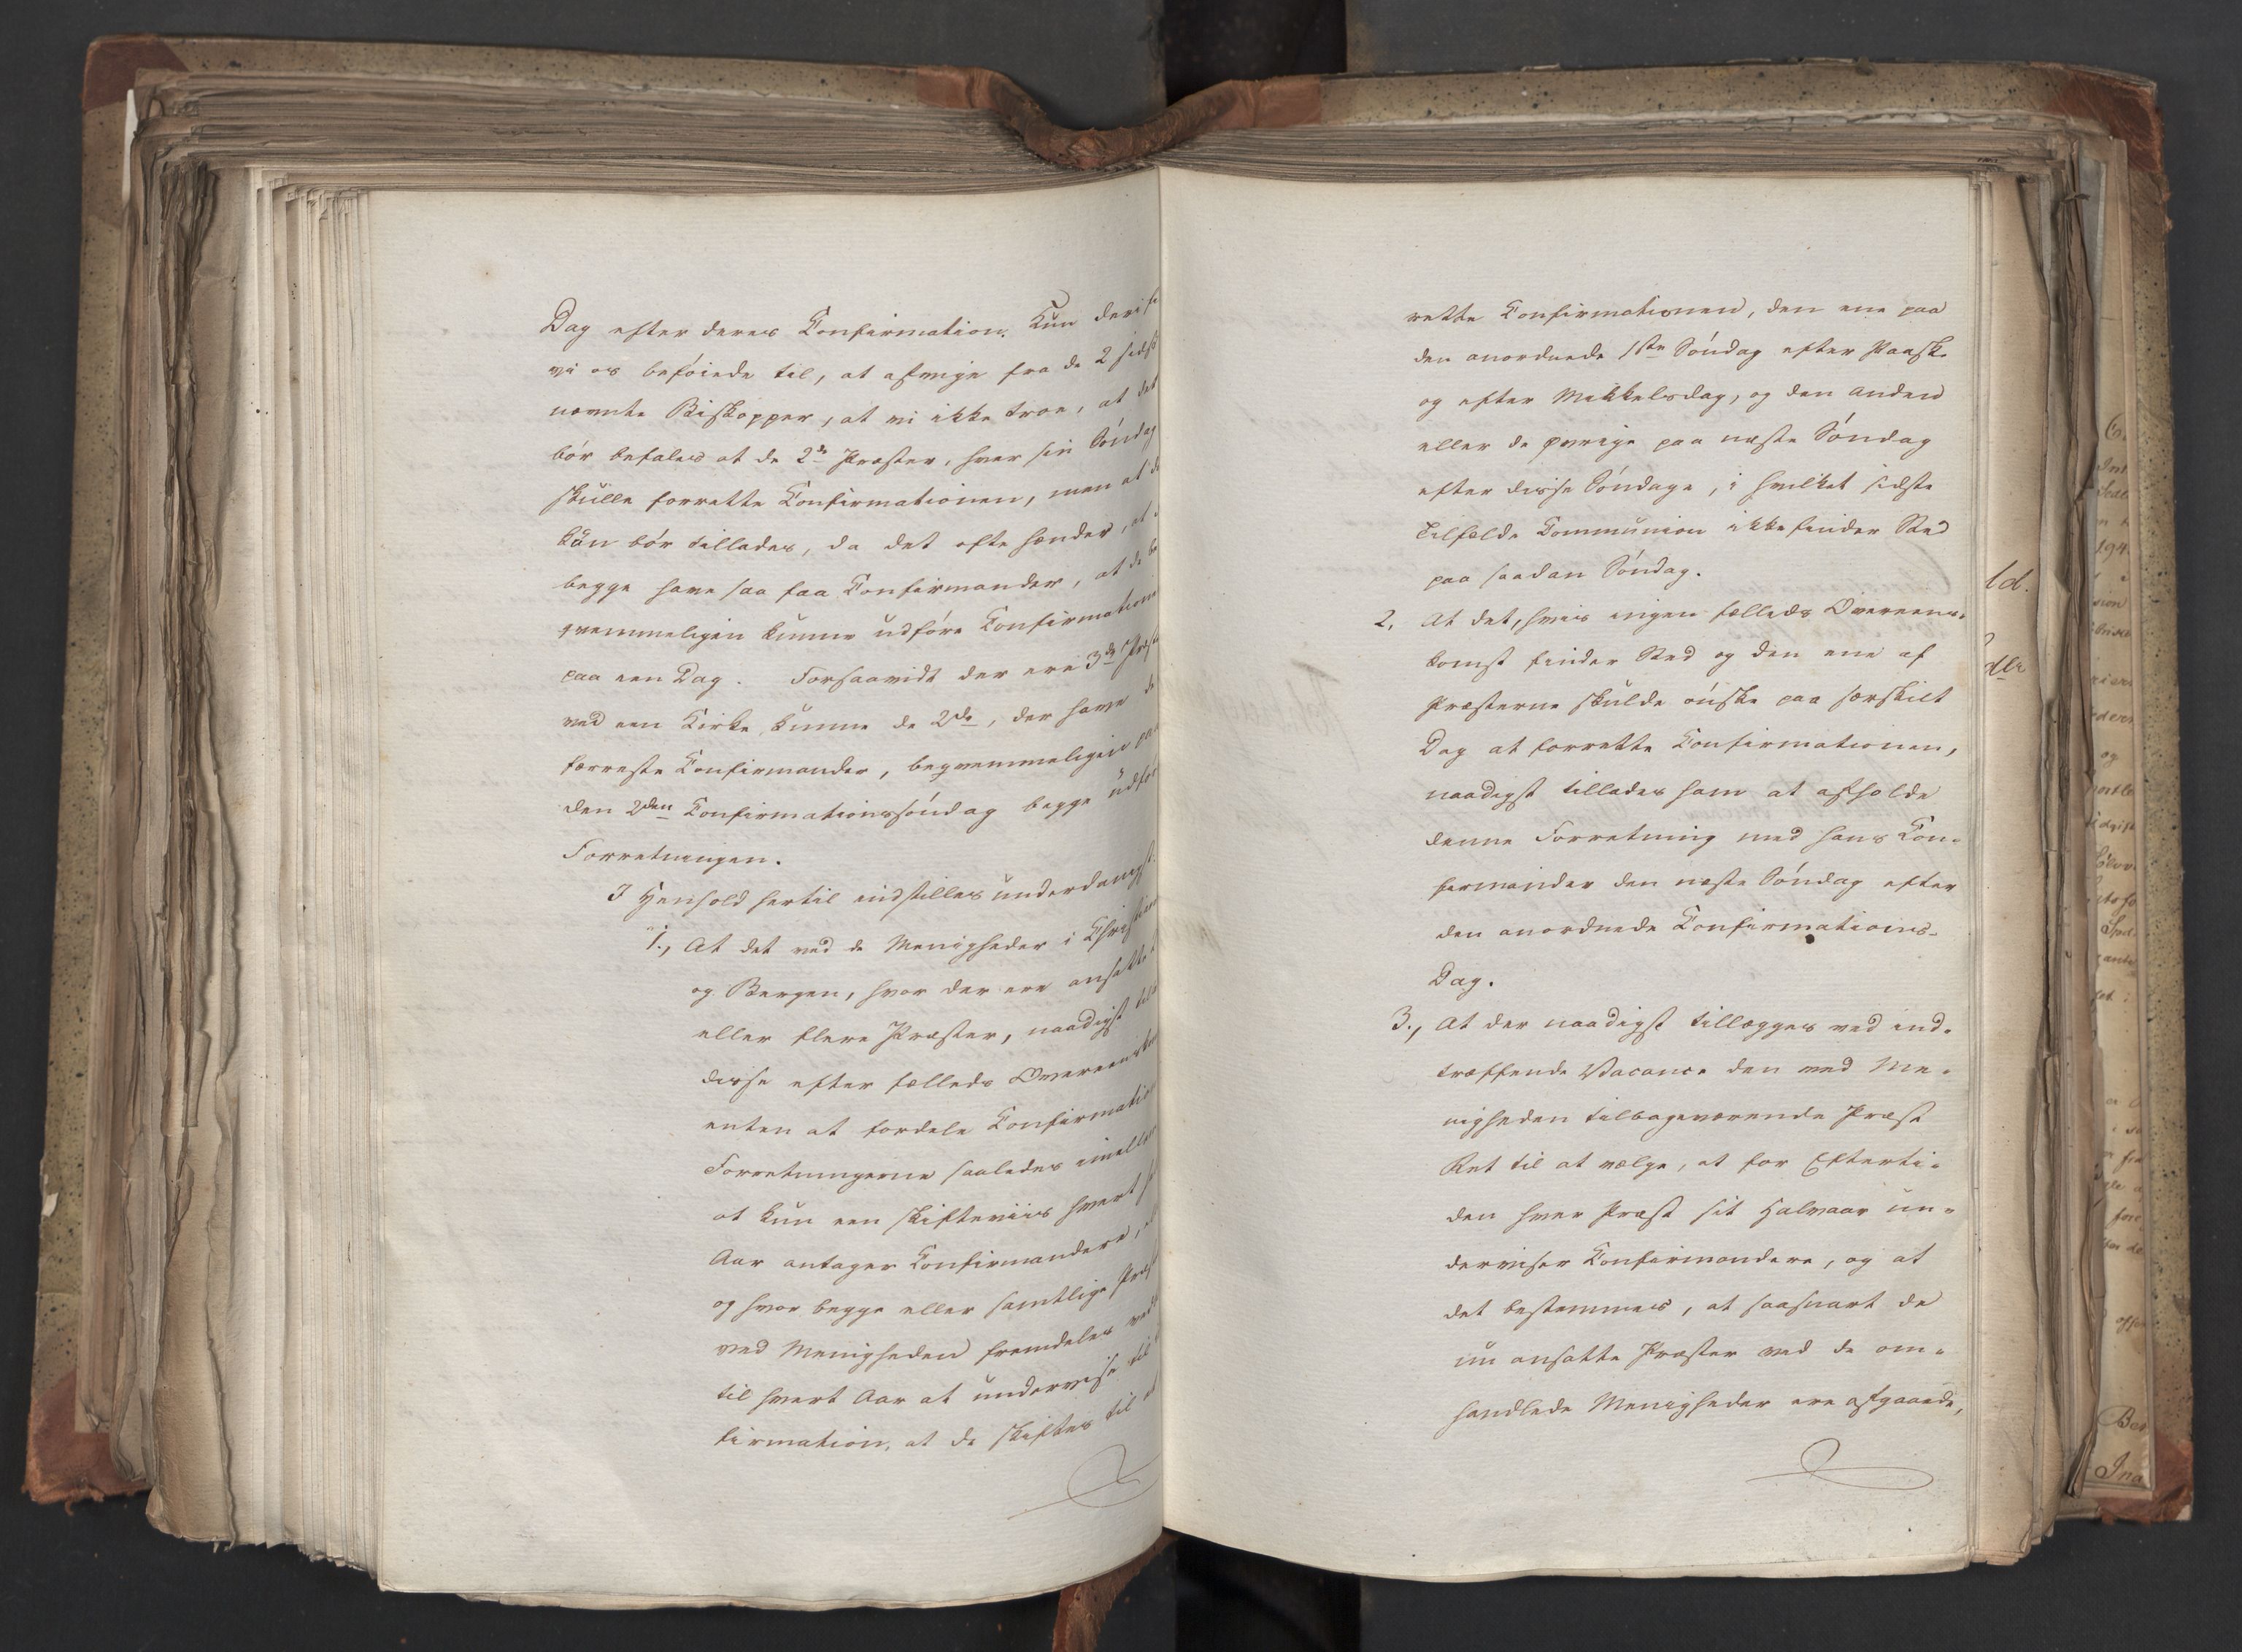 Dag efter deres Confirmation. Kun deri
vi os beföiede til, at afvige fra de 2 sidst
nævnte Biskopper, at vi ikke troe, at det
bör befales at de 2de Præster, hver sin Söndag
skulle forrette Confirmationen, men at
kun bör tillades, da det ofte hænder, at
begge have saa faa Confirmander, at de
qvemmeligen kunne udföre Confirmationen
paa een Dag. Forsaavidt der ere 3de Præster
ved een Kirke, kunne de 2de, der have de
færreste Confirmander, beqvemmeligen paa
den 2den Confirmationssöndag begge udföre
Forretningen.
I Henhold hertil indstilles underdanigst:
1., At det ved de Menigheder i Christiania
og Bergen, hvor der ere ansatte
eller flere Præster, naadigst
disse efter fælleds Overeenskom
enten at fordele Confirmation
Forretningerne saaledes imellem
at kun een skifteviis hvert
Aar antager Confirmandere,
og hvor begge eller samtlige Præster
ved Menigheden fremdeles
til hvert Aar at undervise til
firmation, at de skiftes til
rette Confirmationen, den ene paa
den anordnede 1ste Söndag efter Paaske
og efter Mikkelsdag, og den Anden
eller de øvrige paa næste Söndag
efter disse Söndage, i hvilket sidste
Tilfælde Communion ikke finder Sted
paa saadan Söndag.
2. At det, hvis ingen fælleds Overeens-
komst finder Sted og den ene af
Præsterne skulde önske paa særskilt
Dag at forrette Confirmationen,
naadigst tillades ham at afholde
denne Forretning med hans Con-
firmander den næste Söndag efter
den anordnede Confirmations-
Dag.
3., At der naadigst tillægges ved ind-
træffende Vacance den ved Me-
nigheden tilbageværende Præst
Ret til at vælge, at for Efterti-
den hver Præst sit Halvaar un-
derviser Confirmandere, og at
det bestemmes, at saasnart de
nu ansatte Præster ved de om-
handlede Menigheder ere afgaaede,